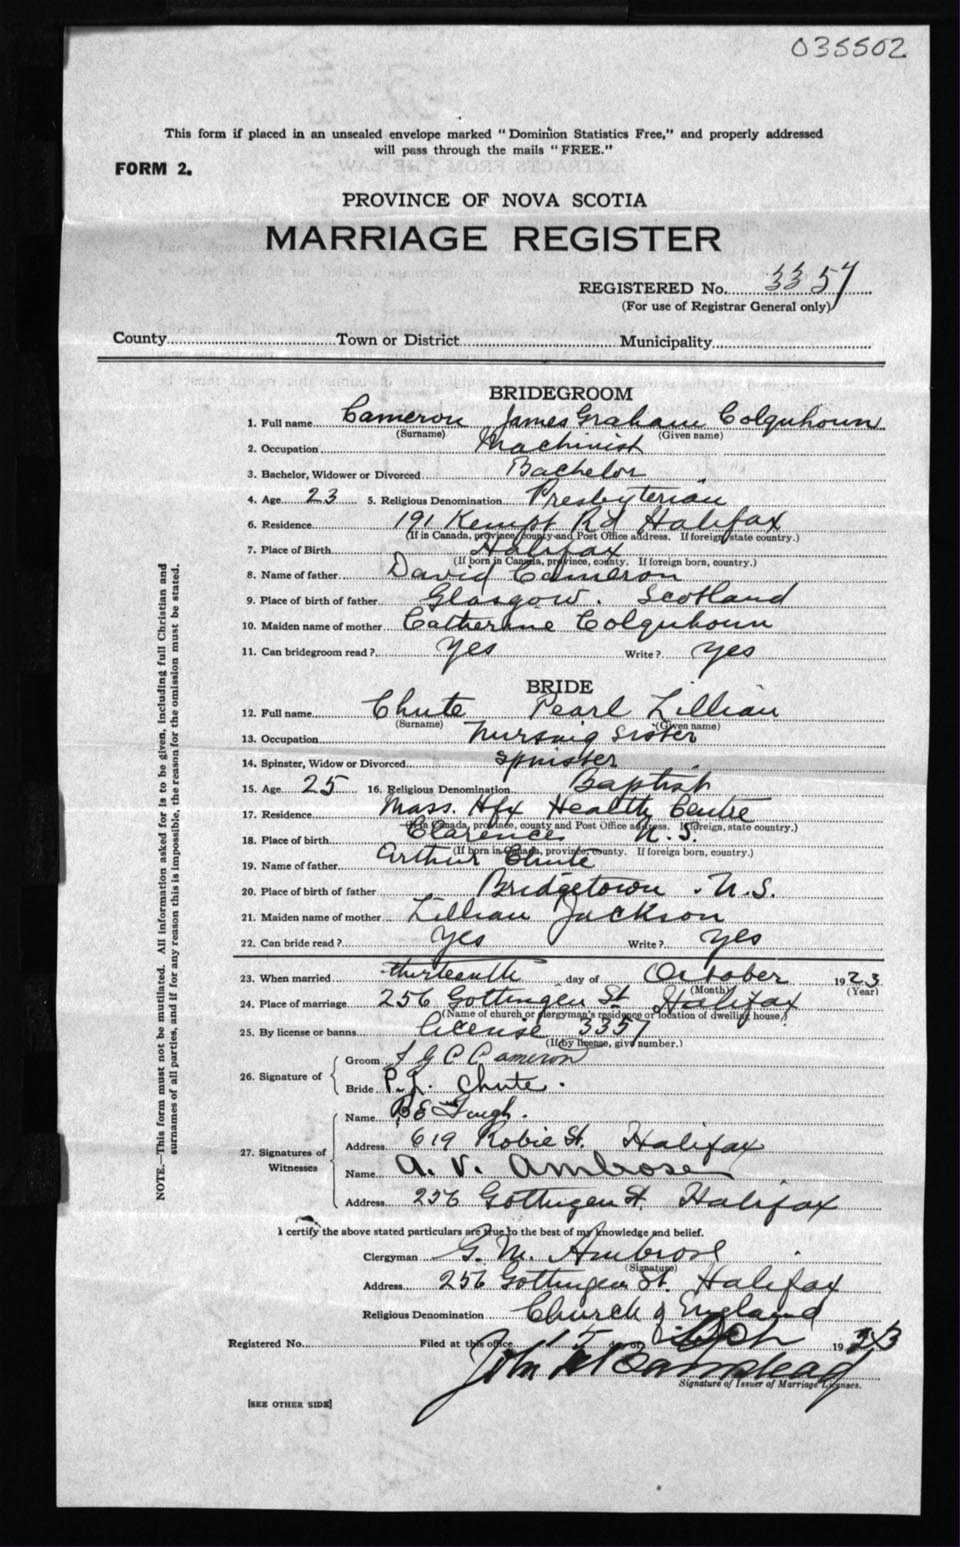 035502
This form if placed in an unsealed envelope marked "Dominion Statistics Free," and properly addressed
will pass through the mails "FREE."
FORM 2.
PROVINCE OF NOVA SCOTIA
MARRIAGE REGISTER
REGISTERED No. 3357
(For use of Registrar General only)
County Town or District Municipality
BRIDEGROOM
1. Full name Cameron James Graham Colquhoun
(Surname) (Given name)
2. Occupation Machinist
3. Bachelor, Widower or Divorced Bachelor
4. Age 23 5. Religious Denomination Presbyterian
6. Residence 191 Kempt Rd Halifax
(If in Canada, province, county and Post Office address. If foreign, state country.)
7. Place of Birth Halifax
(If born in Canada, province, county. If foreign born, country.)
8. Name of father David Cameron
9. Place of birth of father Glasgow. Scotland
10. Maiden name of mother Catherine Colquhoun
11. Can bridegroom read? Yes Write? Yes
BRIDE
12. Full name Chute Pearl Lillian
(Surname) (Given name)
13. Occupation Nursing Sister
14. Spinster, Widow or Divorced Spinster
15. Age 25 16. Religious Denomination Baptist
17. Residence Mass. Hfx Health Centre
(If in Canada, province, county and Post Office address. If foreign, state country.)
18. Place of birth Clarence N.S.
(If born in Canada, province, county. If foreign born, country.)
19. Name of father Arthur Chute
20. Place of birth of father Bridgetown. N.S.
21. Maiden name of mother Lillian Jackson
22. Can bride read? Yes Write? Yes
23. When married thirteenth day of October 1923
(Month) (Year)
24. Place of marriage 256 Gottingen St Halifax
(Name of church or clergyman's residence or location of dwelling house)
25. By license or banns license 3357
(If by license, give number.)
26. Signature of Groom J G C Cameron
Bride P. L. Chute.
27. Signatures of Witnesses Name B E Gough.
Address 619 Robie St. Halifax
Name A. V. Ambrose
Address 256 Gottingen St. Halifax
I certify the above stated particulars are true to the best of my knowledge and belief.
Clergyman G. M. Ambrose
(Signature)
Address 256 Gottingen St. Halifax
Religious Denomination Church of England
Registered No. Filed at this office 15 day of Oct 1923
John Barnstead
Signature of Issuer of Marriage Licenses.
[SEE OTHER SIDE]
NOTE.—This form must not be mutilated. All information asked for is to be given, including full Christian and
surnames of all parties, and if for any reason this is impossible, the reason for the omission must be stated.